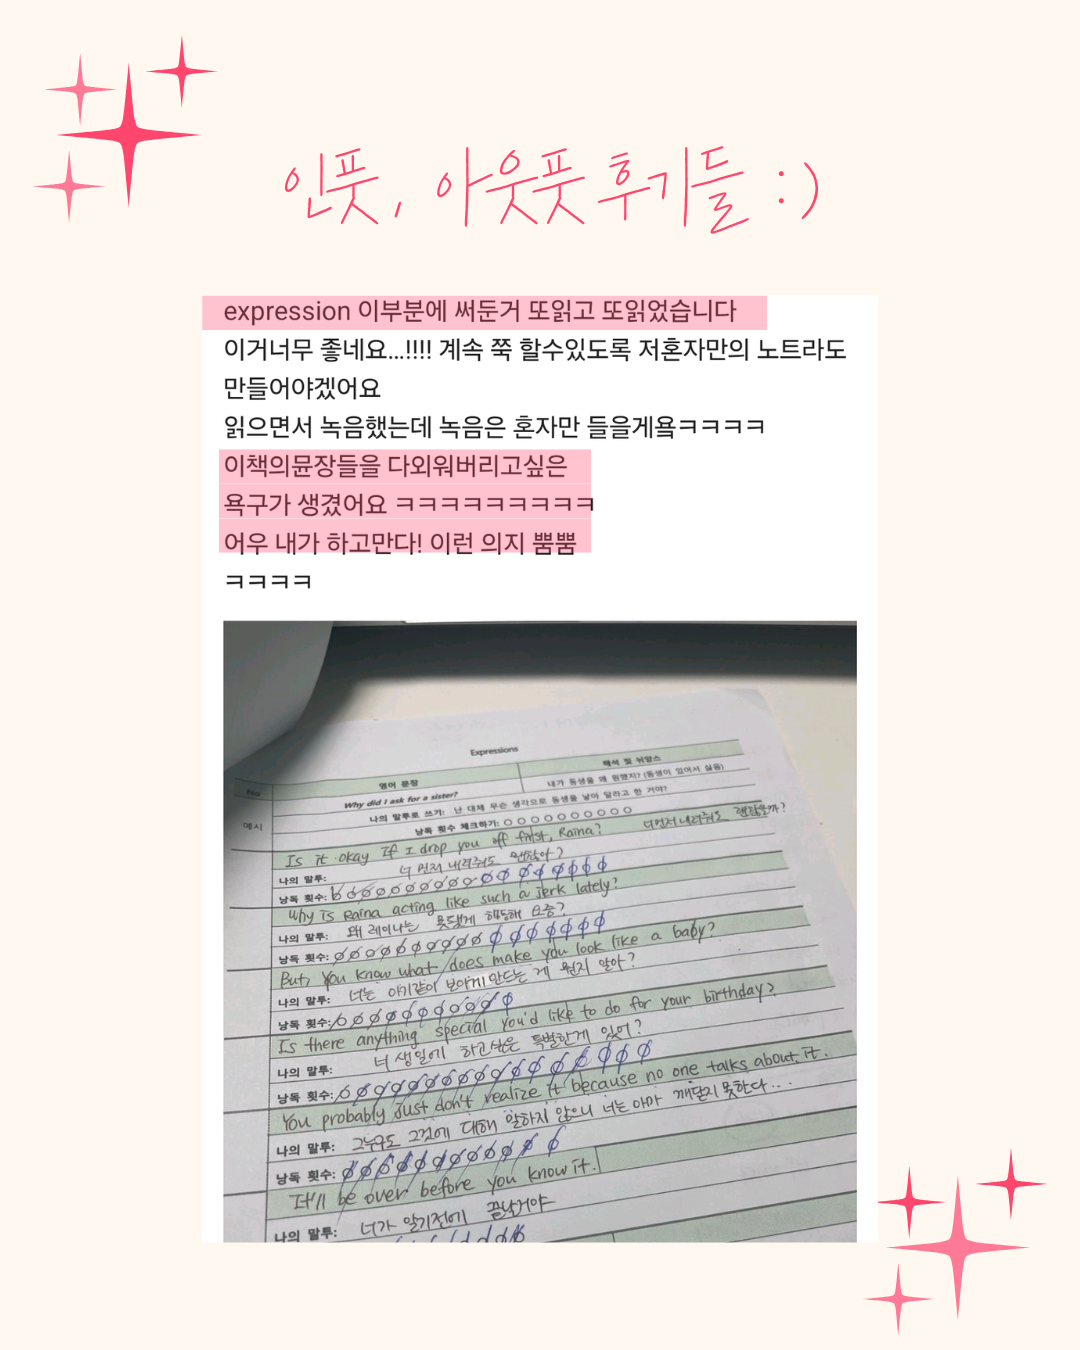 인풋, 아웃풋 후기들 :)
expression 이부분에 써둔거 또읽고 또읽었습니다
이거너무 좋네요...!!!! 계속 쭉 할수있도록 저혼자만의 노트라도
만들어야겠어요
읽으면서 녹음했는데 녹음은 혼자만 들을게욬ㅋㅋㅋㅋ
이책의뮨장들을 다외워버리고싶은
욕구가 생겼어요 ㅋㅋㅋㅋㅋㅋㅋㅋㅋㅋ
어우 내가 하고만다! 이런 의지 뿜뿜
ㅋㅋㅋㅋ
Expressions
No 영어 문장 해석 및 뉘앙스
예시 Why did I ask for a sister? 내가 동생을 왜 원했지? (동생이 있어서 싫음)
나의 말투로 쓰기: 난 대체 무슨 생각으로 동생을 낳아 달라고 한 거야?
낭독 횟수 체크하기: ○○○○○○○○○○
Is it okay if I drop you off first, Raina? 너먼저 내려줘도 괜찮을까?
나의 말투: 너 먼저 내려줘도 괜찮아?
낭독 횟수:
Why is Raina acting like such a jerk lately?
나의 말투: 왜 레이나는 못됐게 행동해 요즘?
낭독 횟수:
But, You know what does make you look like a baby?
나의 말투: 너는 아기같이 보이게 만드는 게 뭔지 알아?
낭독 횟수:
Is there anything special you'd like to do for your birthday?
나의 말투: 너 생일에 하고싶은 특별한게 있어?
낭독 횟수:
You probably just don't realize it because no one talks about it.
나의 말투: 그누구도 그것에 대해 말하지 않으니 너는 아마 깨닫지 못한다...
낭독 횟수:
It'll be over before you know it.
나의 말투: 너가 알기전에 끝날거야